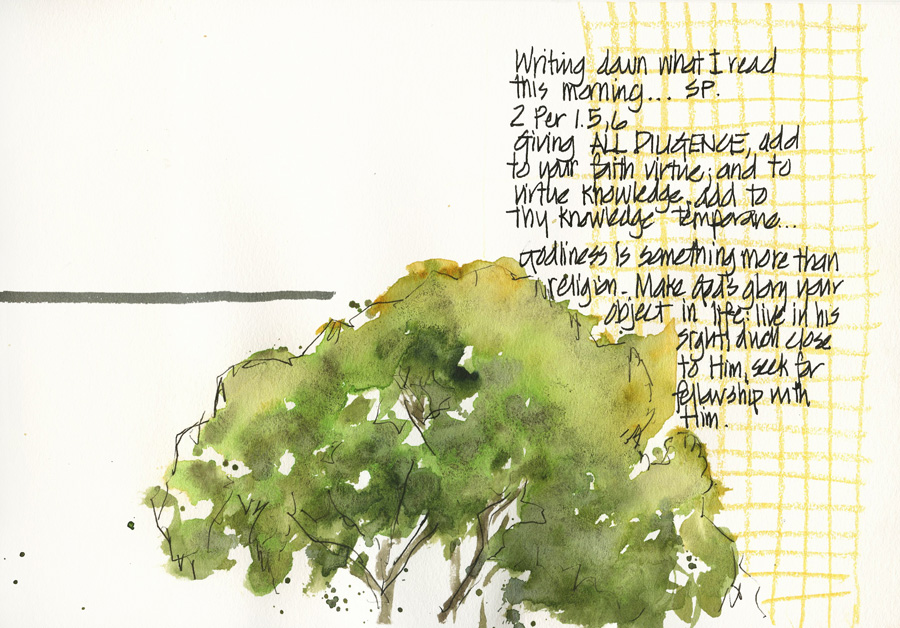 Writing down what I read
this morning... SP.
2 Per 1.5,6
Giving ALL DILIGENCE, add
to your faith virtue; and to
virtue knowledge, add to
thy knowledge temperance...
Godliness is something more than
religion. Make God's glory your
object in life; live in his
sight, dwell close
to Him, seek for
fellowship with
Him.